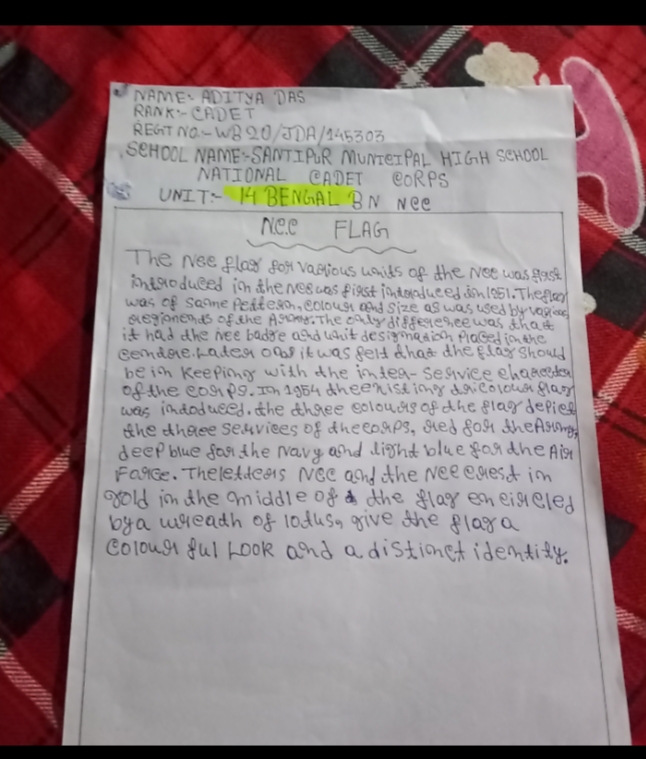 NAME:- ADITYA DAS
RANK:- CADET
REGT NO:- WB20/JDA/145303
SCHOOL NAME:-SANTIPUR MUNICIPAL HIGH SCHOOL
NATIONAL CADET CORPS
UNIT:- 14 BENGAL BN NCC
N.C.C FLAG
The NCC flag for various units of the NCC was first
introduced in the NCC was first introduced in 1951. The flag
was of same pettern, colour and size as was used by various
regiments of the Army. The only difference was that
it had the NCC badge and unit designation placed in the
centre. Later on it was felt that the flag should
be in keeping with the inter-service character
of the corps. In 1954 the existing tricolour flag
was intoduced. the three colours of the flag depict
the three services of the corps, red for the Army,
deep blue for the Navy and light blue for the Air
Farce. The letters NCC and the NCC crest in
gold in the middle of the flag encircled
by a wreath of lotus, give the flag a
colourful LOOK and a distinct identity.